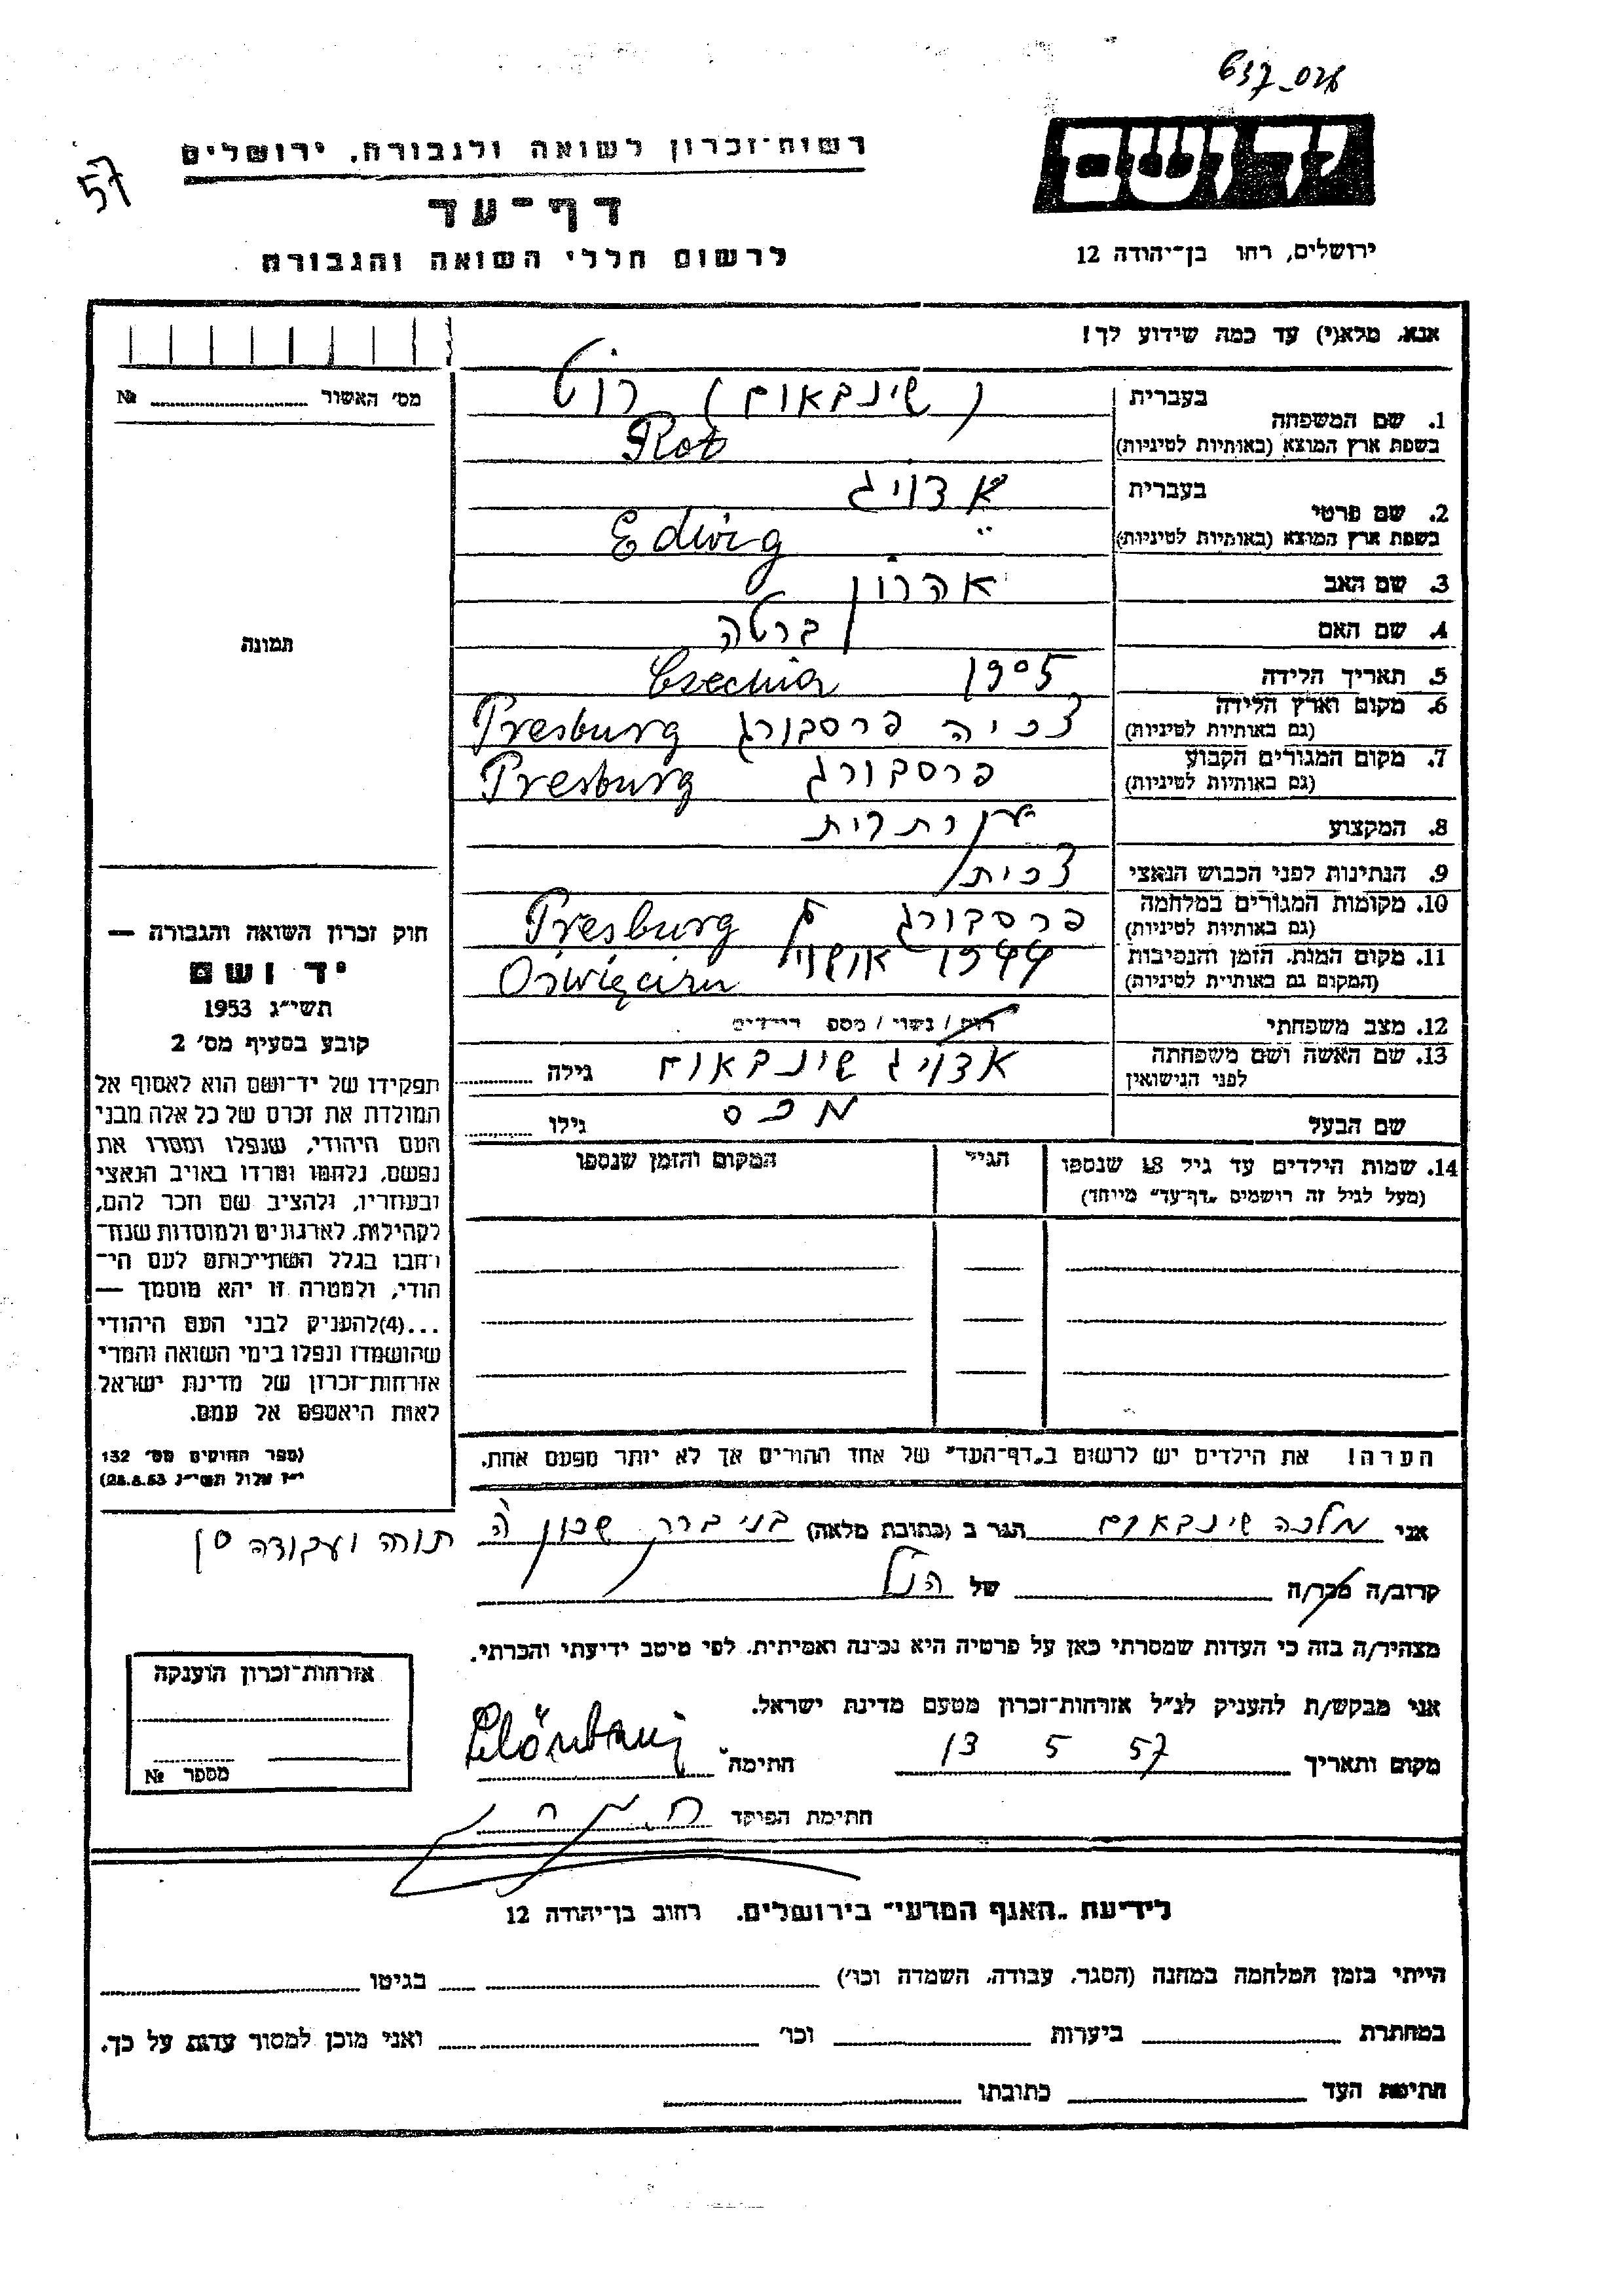 יד ושם
ירושלים, רחו בן־יהודה 12
רשות־זכרון לשואה ולגבורה, ירושלים
57
דף־עד
לרשום חללי השואה והגבורה
אנא, מלא(י) עד כמה שידוע לך!
מס׳ האשור № 
1. שם המשפחה
בעברית
(שינבאום) רוט
בשפת ארץ המוצא (באותיות לטיניות)
Rot
2. שם פרטי
בעברית
אדויג
בשפת ארץ המוצא (באותיות לטיניות)
Edwig
3. שם האב אהרון
4. שם האם ברטה
5. תאריך הלידה 1905 Czechia
6. מקום וארץ הלידה
(גם באותיות לטיניות)
צכיה פרסבורג Presburg
7. מקום המגורים הקבוע
(גם באותיות לטיניות)
פרסבורג Presburg
8. המקצוע
9. הנתינות לפני הכבוש הנאצי צכית
10. מקומות המגורים במלחמה
(גם באותיות לטיניות)
פרסבורג Presburg
11. מקום המות, הזמן והנסיבות
(המקום גם באותיות לטיניות)
1944 Oświęcim
12. מצב משפחתי רוק / נשוי / מספ׳ הילדים
13. שם האשה ושם משפחתה
לפני הנישואין
אדויג שינבאום גילה
שם הבעל מכס גילו
14. שמות הילדים עד גיל 18 שנספו
(מעל לגיל זה רושמים „דף־עד״ מיוחד)
הגיל
המקום והזמן שנספו
הערה! את הילדים יש לרשום ב„דף־העד״ של אחד ההורים אך לא יותר מפעם אחת.
תמונה
חוק זכרון השואה והגבורה —
יד ושם
תשי״ג 1953
קובע בסעיף מס׳ 2
תפקידו של יד־ושם הוא לאסוף אל
המולדת את זכרם של כל אלה מבני
העם היהודי, שנפלו ומסרו את
נפשם, נלחמו ומרדו באויב הנאצי
ובעוזריו, ולהציב שם וזכר להם,
לקהילות, לארגונים ולמוסדות שנח־
רחבו בגלל השתייכותם לעם הי־
הודי, ולמטרה זו יהא מוסמך —
...(4)להעניק לבני העם היהודי
שהושמדו ונפלו בימי השואה והמרי
אזרחות־זכרון של מדינת ישראל
לאות היאספם אל עמם.
(ספר החוקים מס׳ 132
י״ז אלול תשי״ג 28.8.53)
אני מלכה שינבאום הגר ב (כתובת מלאה) בני ברק שכון ה
תורה ועבודה
קרוב/ה מכר/ה של הנ״ל
מצהיר/ה בזה כי העדות שמסרתי כאן על פרטיה היא נכונה ואמיתית, לפי מיטב ידיעתי והכרתי.
אני מבקש/ת להעניק לנ״ל אזרחות־זכרון מטעם מדינת ישראל.
מקום ותאריך 13 5 57 חתימה
חתימת הפוקד
אזרחות־זכרון הוענקה
מספר №
לידיעת „האגף המדעי״ בירושלים, רחוב בן־יהודה 12
הייתי בזמן המלחמה במחנה (הסגר, עבודה, השמדה וכו׳) בגיטו
במחתרת ביערות וכו׳ ואני מוכן למסור עדות על כך.
חתימת העד כתובתו